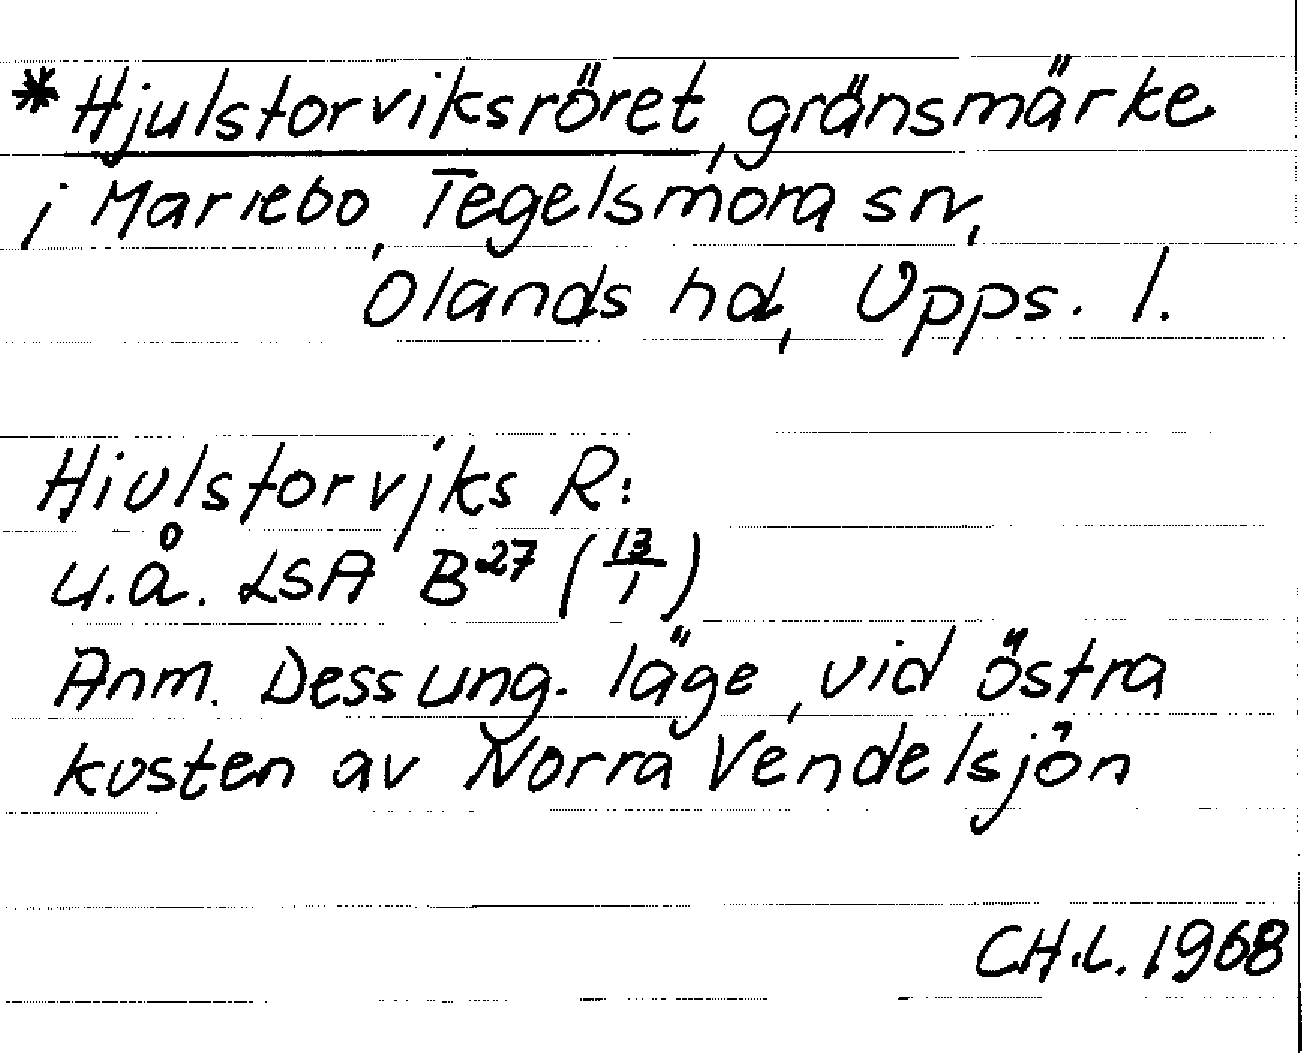 *Hjulstorviksröret, gränsmärke
i Mariebo, Tegelsmora sn,
Olands hd, Upps. l.
Hiulstorvjks R:
u.å. LSA B27 (13/1)
Anm. Dess ung. läge, vid östra
kusten av Norra Vendelsjön
CH.L. 1968